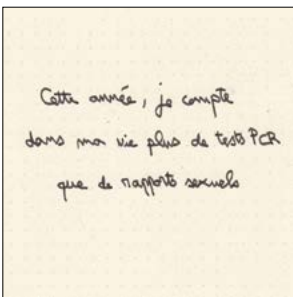 Cette année, je compte
dans ma vie plus de tests PCR
que de rapports sexuels